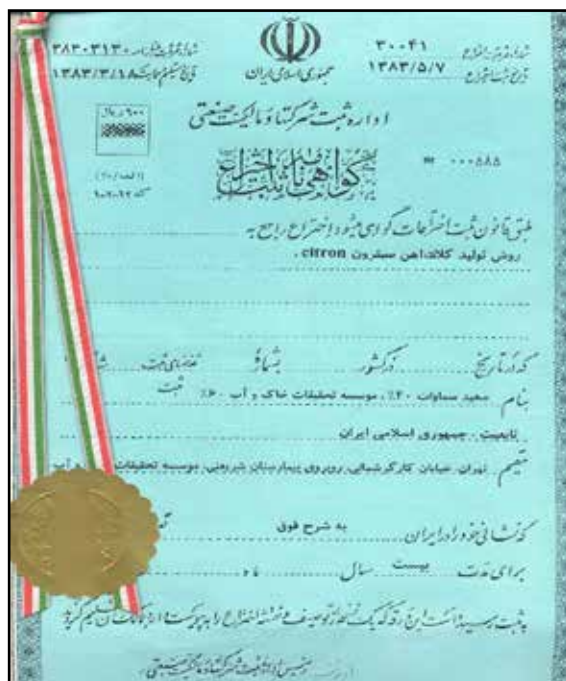 شماره ثبت اختراع ۳۰۰۴۱
تاریخ ثبت اختراع ۱۳۸۳/۵/۷
جمهوری اسلامی ایران
۳۸۳۰۳۱۳۰
۱۳۸۳/۳/۱۸
اداره ثبت شرکتها و مالکیت صنعتی
۶۰۰ ریال
گواهی نامه ثبت اختراع
№ ۰۰۰۵۸۵
طبق قانون ثبت اختراعات گواهی میشود اختراع راجع به
روش تولید کلات آهن سیترون citron .
که در تاریخ در کشور بشماره تقاضای ثبت
ثبت
بنام سعید سماوات ۴۰٪ ، موسسه تحقیقات خاک و آب ۶۰٪
تابعیت ، جمهوری اسلامی ایران
مقیم تهران، خیابان کارگرشمالی، روبروی بیمارستان شریعتی، موسسه تحقیقات آب
که نشانی خود را در ایران به شرح فوق
برای مدت بیست سال ماه
به ثبت رسیده است این ورقه که یک نسخه از توصیف و نقشه اختراع را به پیوست دارد تسلیم گردید
رئیس اداره ثبت شرکتها و مالکیت صنعتی